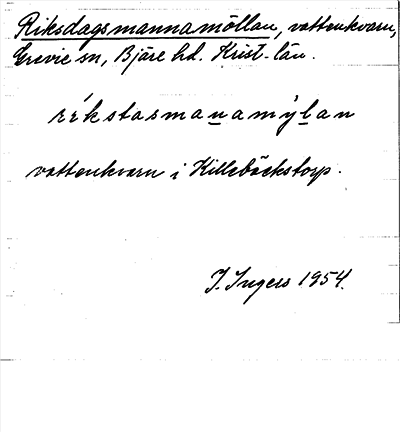 Riksdagsmannamöllan, vattenkvarn,
Grevie sn, Bjäre hd. Krist. län.
ríkstasmanamýlan
vattenkvarn i Killebäckstorp.
I. Ingers 1954.